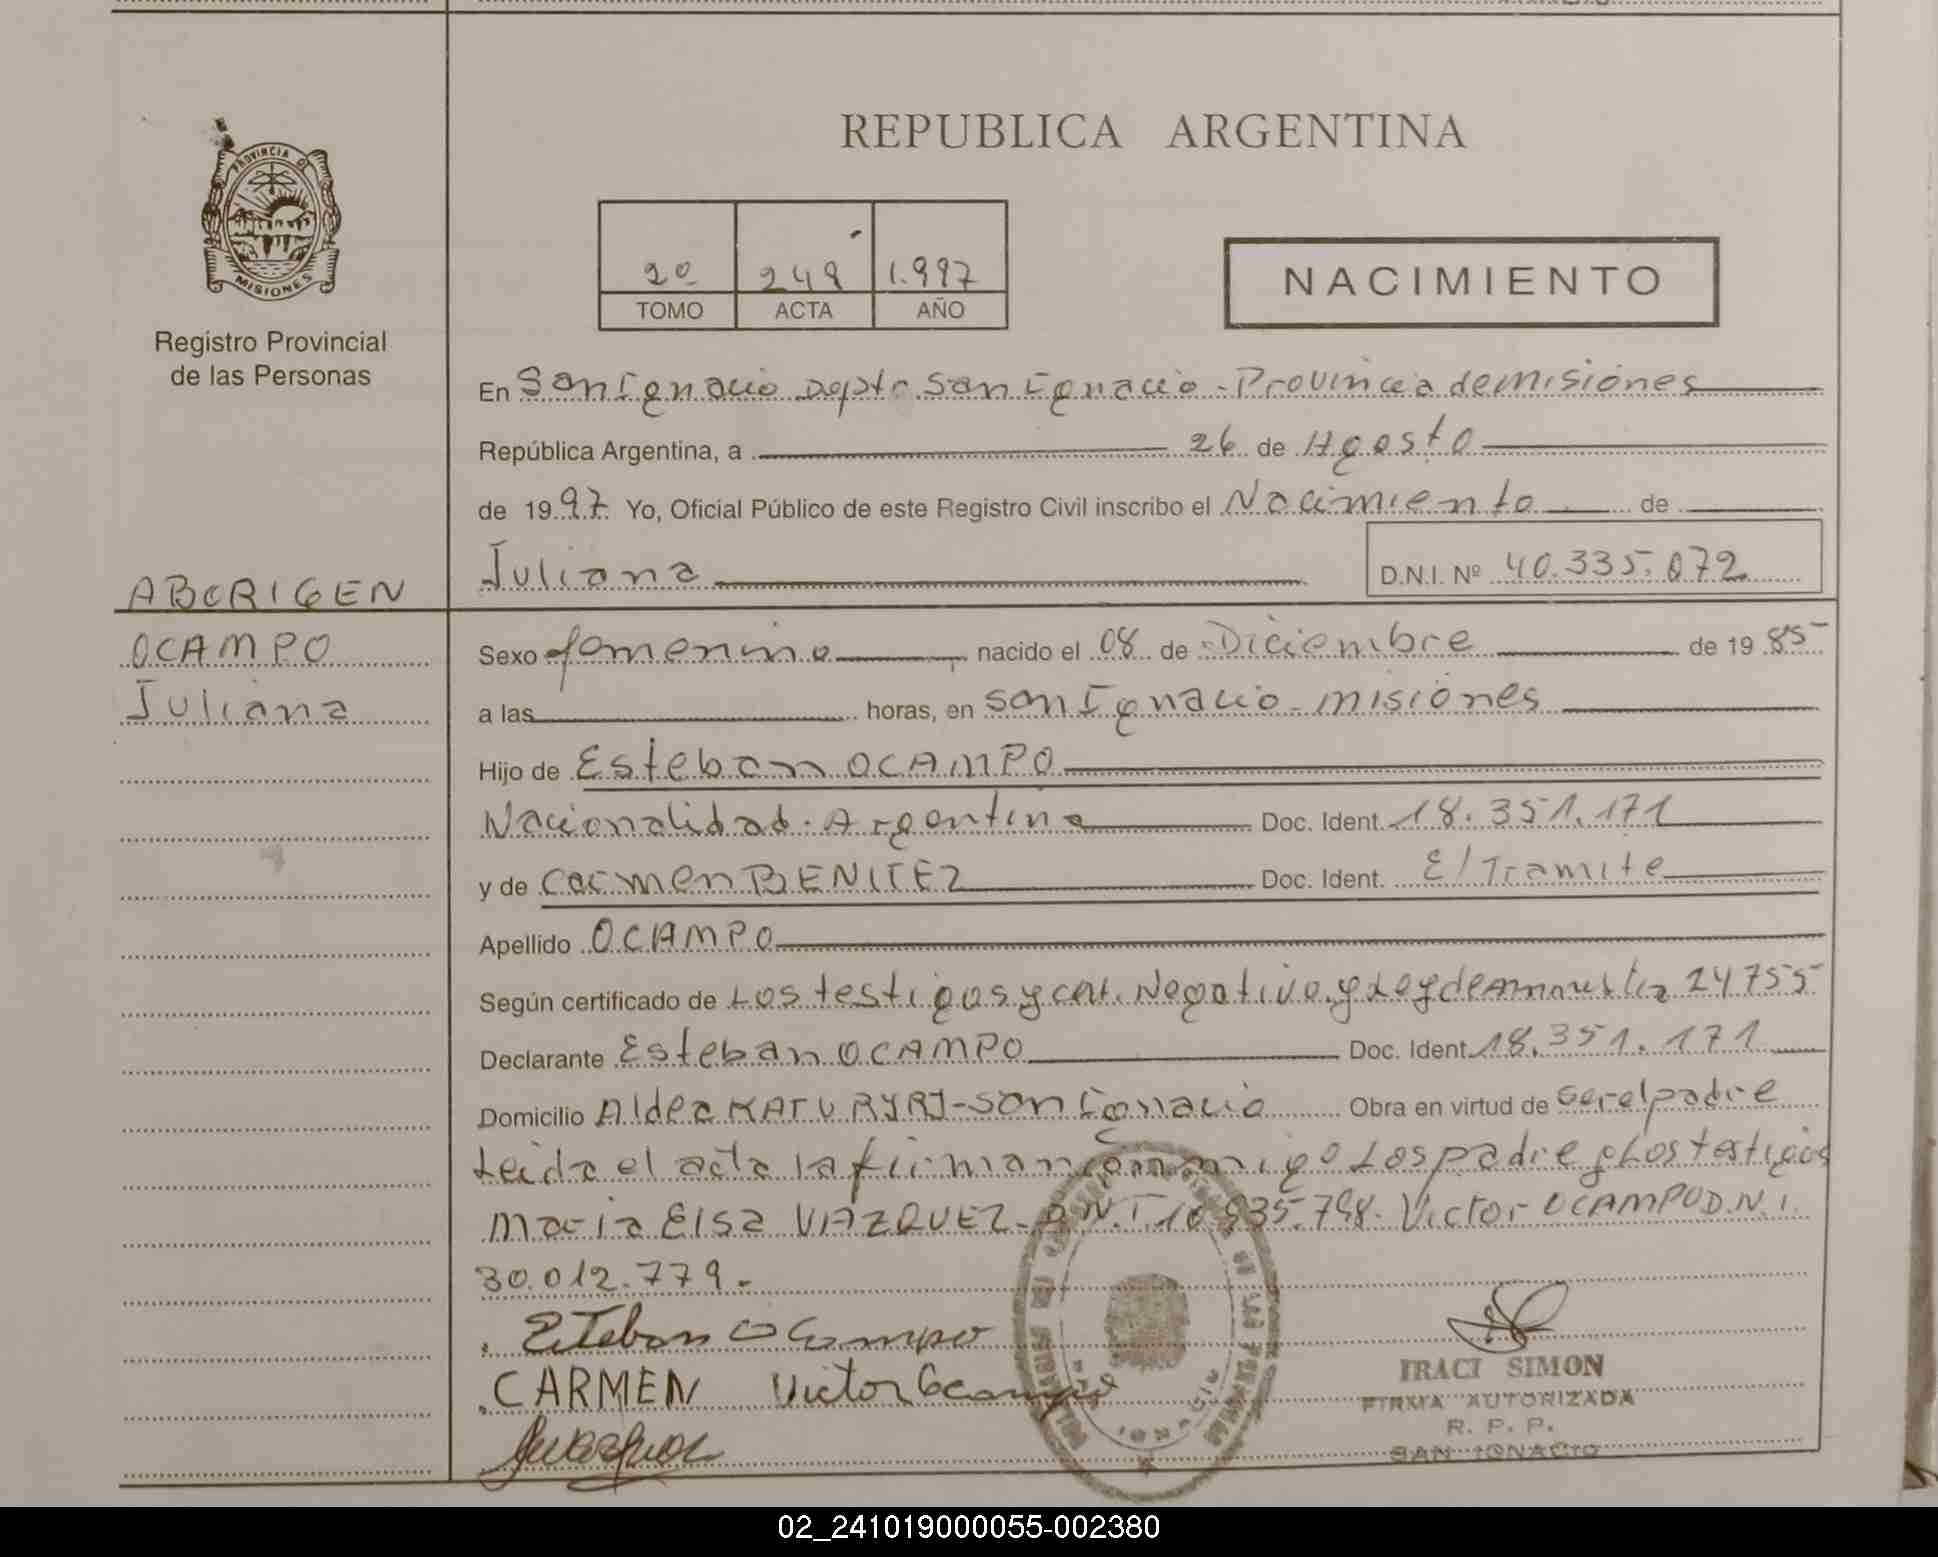 REPUBLICA ARGENTINA
PROVINCIA DE
MISIONES
Registro Provincial
de las Personas
20 248 1.997
TOMO ACTA AÑO
NACIMIENTO
En San Ignacio Depto San Ignacio - Provincia de misiones
República Argentina, a 26 de Agosto
de 1997 Yo, Oficial Público de este Registro Civil inscribo el Nacimiento de
Juliana D.N.I. Nº 40.335.072
ABORIGEN
OCAMPO
Juliana
Sexo femenino, nacido el 08 de Diciembre de 1985
a las horas, en san Ignacio - misiones
Hijo de Esteban OCAMPO
Nacionalidad. Argentina Doc. Ident. 18.351.171
y de Carmen BENITEZ Doc. Ident. E/Tramite
Apellido OCAMPO
Según certificado de Los testigos y cert. Negativo. y Ley de Amnistia 24755
Declarante Esteban OCAMPO Doc. Ident. 18.351.171
Domicilio Aldea KATU RYRJ - san Ignacio Obra en virtud de ser el padre
Leida el acta la firman conmigo Los padre y Los testigos
maria Elsa VAZQUEZ - D.N.I. 935.798. Victor OCAMPO D.N.I.
30.012.779.
Esteban Ocampo
CARMEN Victor Ocampo
IRACI SIMON
FIRMA AUTORIZADA
R. P. P.
SAN IGNACIO
02_241019000055-002380